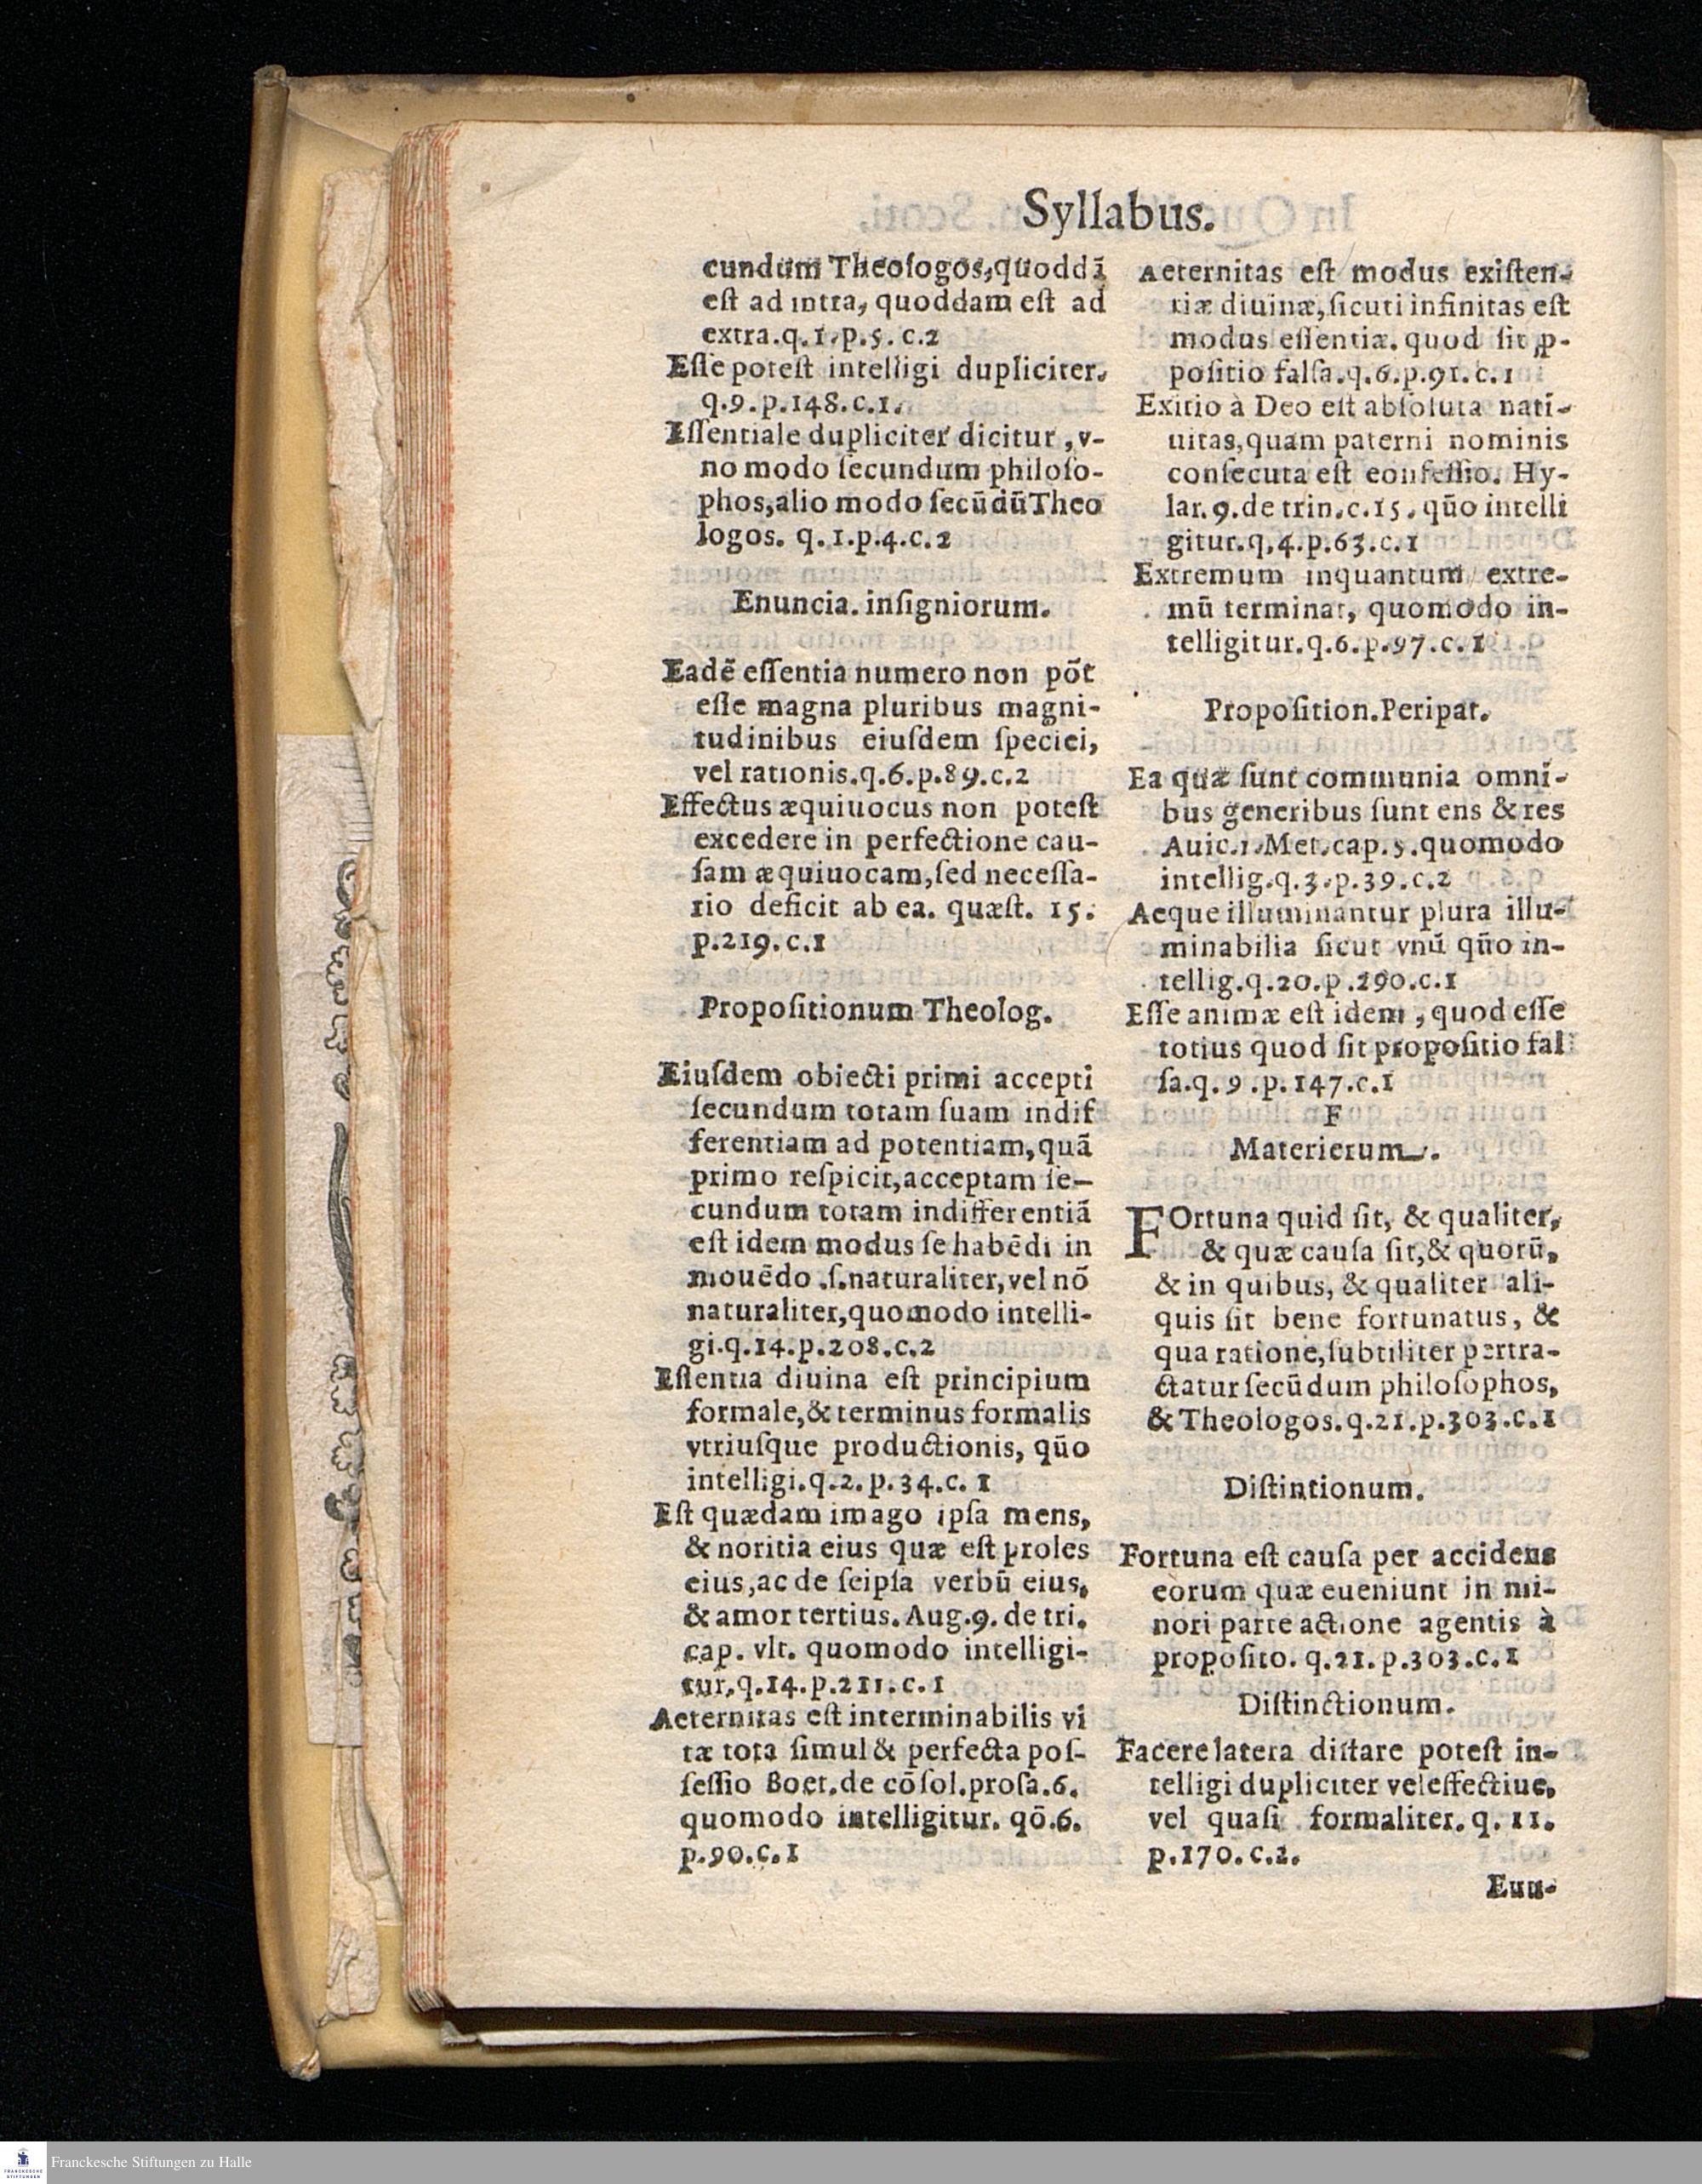 Syllabus.
cundum Theologos, quoddã
est ad intra, quoddam est ad
extra.q.1.p.5.c.2
Esse potest intelligi dupliciter.
q.9.p.148.c.1.
Essentiale dupliciter dicitur, v-
no modo secundum philoso-
phos, alio modo secũdũ Theo
logos. q.1.p.4.c.2
Enuncia. insigniorum.
Eadẽ essentia numero non põt
esse magna pluribus magni-
tudinibus eiusdem speciei,
vel rationis.q.6.p.89.c.2
Effectus æquiuocus non potest
excedere in perfectione cau-
sam æquiuocam, sed necessa-
rio deficit ab ea. quæst. 15.
p.219.c.1
Propositionum Theolog.
Eiusdem obiecti primi accepti
secundum totam suam indif
ferentiam ad potentiam, quã
primo respicit, acceptam se-
cundum totam indifferentiã
est idem modus se habẽdi in
mouẽdo .s. naturaliter, vel nõ
naturaliter, quomodo intelli-
gi.q.14.p.208.c.2
Essentia diuina est principium
formale, & terminus formalis
vtriusque productionis, qũo
intelligi.q.2.p.34.c.1
Est quædam imago ipsa mens,
& noritia eius quæ est proles
eius, ac de seipsa verbũ eius,
& amor tertius. Aug.9. de tri.
cap. vlt. quomodo intelligi-
tur.q.14.p.211.c.1
Aeternitas est interminabilis vi
tæ tota simul & perfecta pos-
sessio Boet. de cõsol. prosa.6.
quomodo intelligitur. qõ.6.
p.90.c.1
Aeternitas est modus existen-
tiæ diuinæ, sicuti infinitas est
modus essentiæ. quod sit ꝓ-
positio falsa.q.6.p.91.c.1
Exitio à Deo est absoluta nati-
uitas, quam paterni nominis
consecuta est eonfessio. Hy-
lar.9. de trin.c.15. qũo intelli
gitur.q.4.p.63.c.1
Extremum inquantum extre-
mũ terminat, quomodo in-
telligitur.q.6.p.97.c.1
Proposition. Peripat.
Ea quæ sunt communia omni-
bus generibus sunt ens & res
Auic.1.Met.cap.5. quomodo
intellig.q.3.p.39.c.2
Aeque illuminantur plura illu-
minabilia sicut vnũ qũo in-
tellig.q.20.p.290.c.1
Esse animæ est idem, quod esse
totius quod sit propositio fal
sa.q.9.p.147.c.1
F
Materierum.
FOrtuna quid sit, & qualiter,
& quæ causa sit, & quorũ,
& in quibus, & qualiter ali-
quis sit bene fortunatus, &
qua ratione, subtiliter pertra-
ctatur secũdum philosophos,
& Theologos.q.21.p.303.c.1
Distintionum.
Fortuna est causa per accidens
eorum quæ eueniunt in mi-
nori parte actione agentis à
proposito. q.21.p.303.c.1
Distinctionum.
Facere latera distare potest in-
telligi dupliciter vel effectiue,
vel quasi formaliter. q. 11.
p.170.c.2.
Enu-
Franckesche Stiftungen zu Halle
FRANCKESCHE
STIFTUNGEN